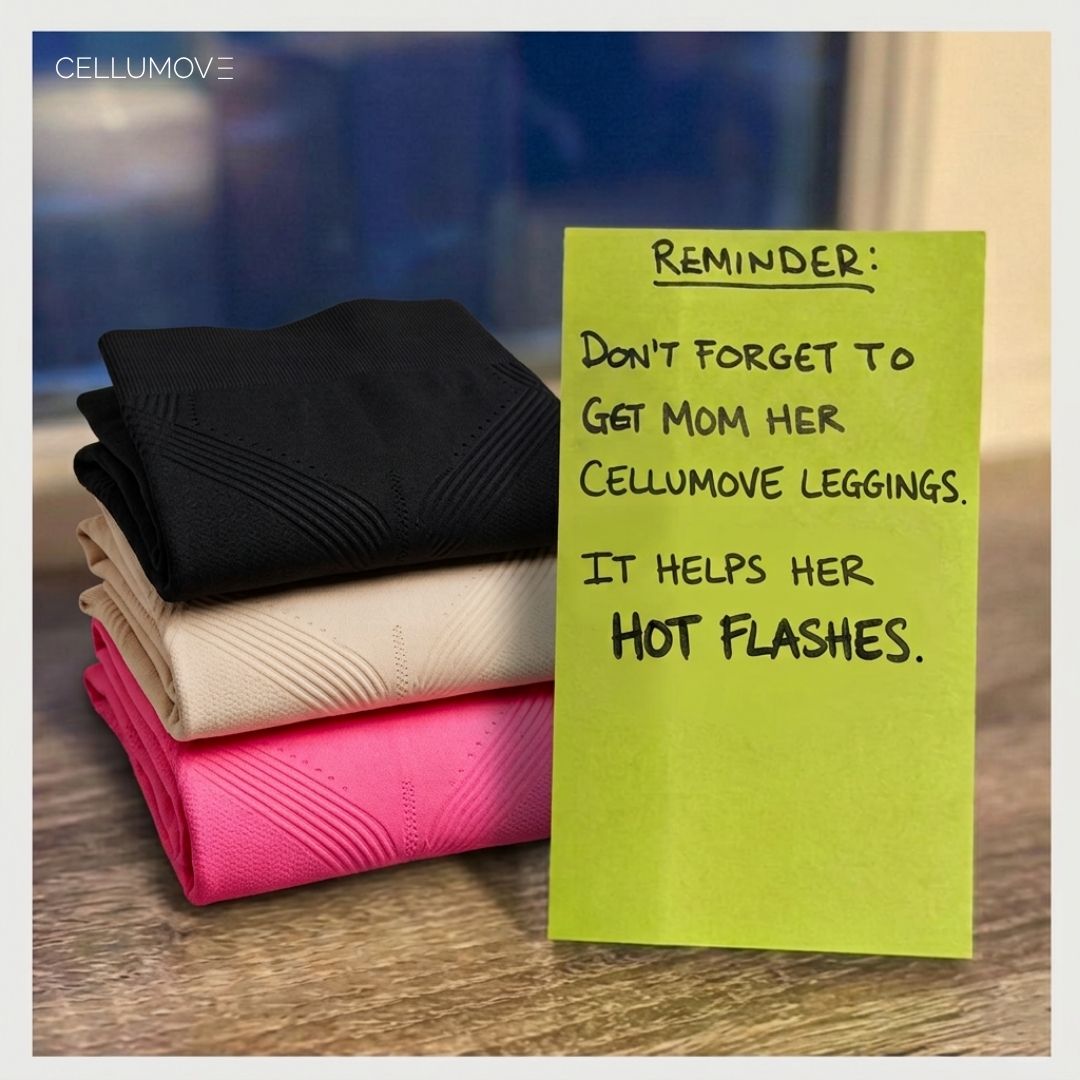 CELLUMOVE
REMINDER:
DON'T FORGET TO
GET MOM HER
CELLUMOVE LEGGINGS.
IT HELPS HER
HOT FLASHES.